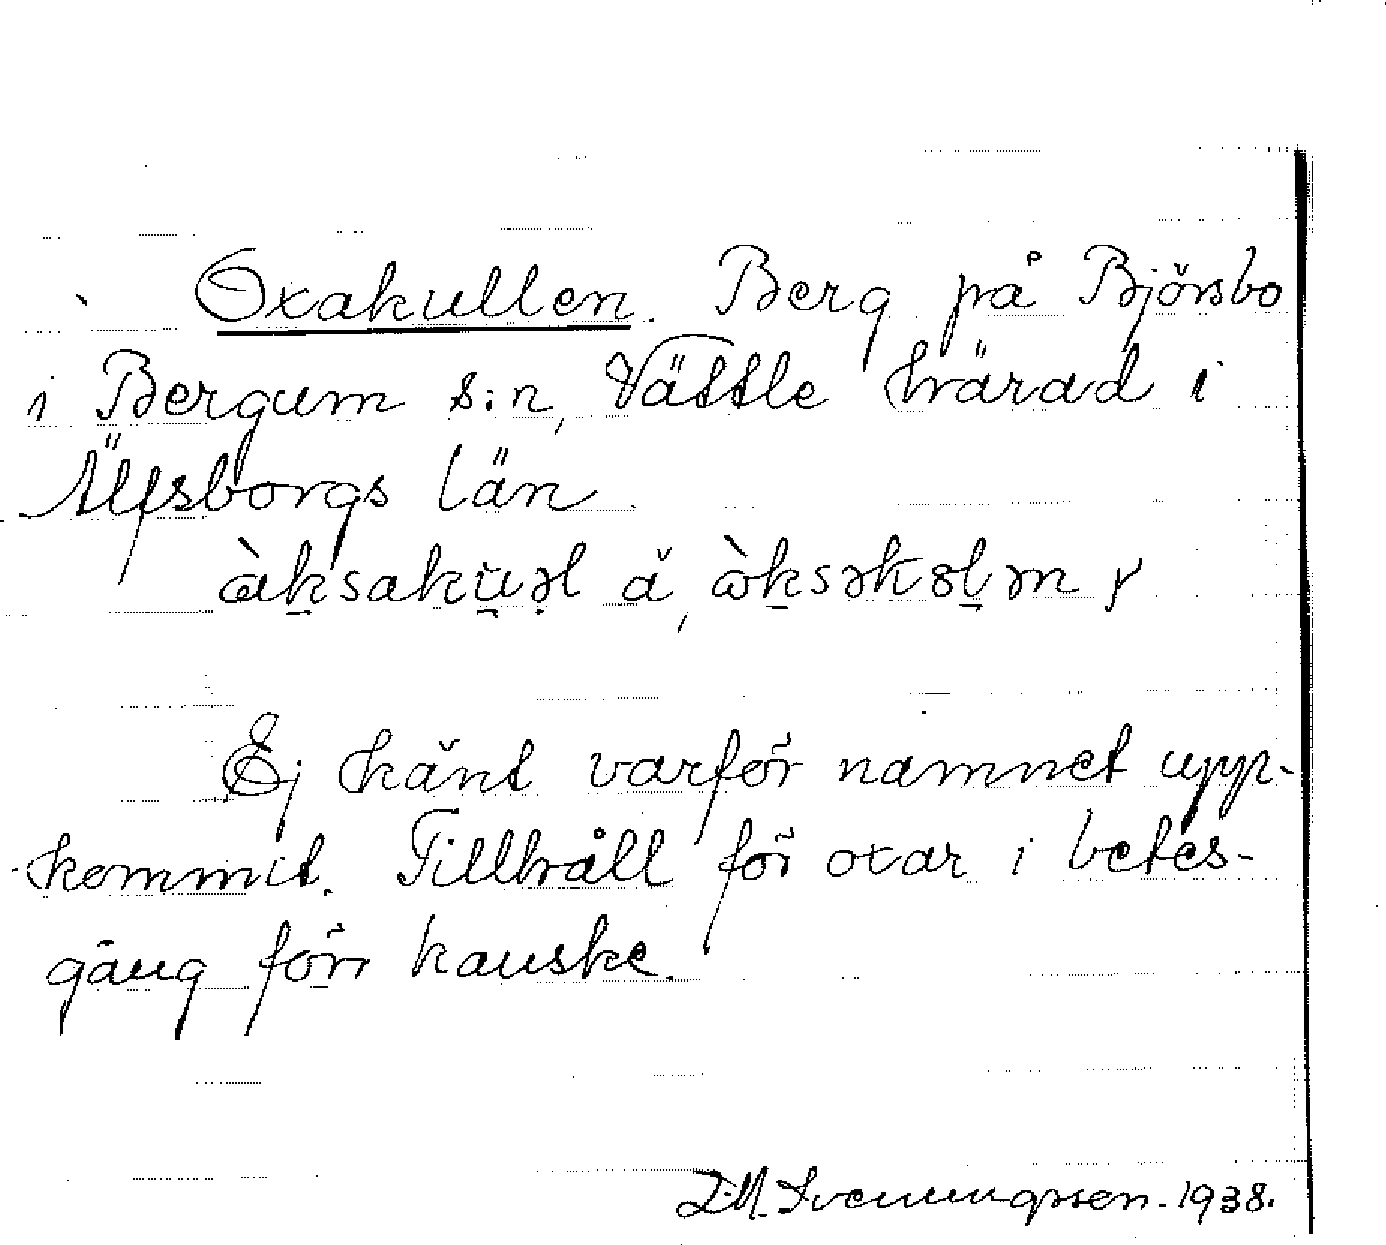 Oxakullen. Berg på Björsbo
i Bergum s:n, Vättle härad i
Älfsborgs län.
Ej känt varför namnet upp-
kommit. Tillhåll för oxar i betes-
gång förr kanske.
Svenningsson. 1938.